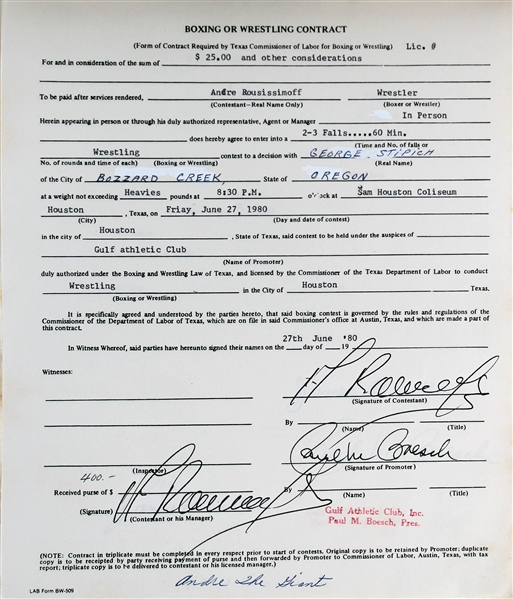 BOXING OR WRESTLING CONTRACT
(Form of Contract Required by Texas Commissioner of Labor for Boxing or Wrestling) Lic. #
For and in consideration of the sum of $ 25.00 and other considerations
To be paid after services rendered, Andre Rousissimoff Wrestler
(Contestant—Real Name Only) (Boxer or Wrestler)
Herein appearing in person or through his duly authorized representative, Agent or Manager In Person
does hereby agree to enter into a 2-3 Falls....60 Min.
(Time and No. of falls or
Wrestling contest to a decision with GEORGE STIPICH
No. of rounds and time of each) (Boxing or Wrestling) (Real Name)
of the City of BOZZARD CREEK, State of OREGON
at a weight not exceeding Heavies pounds at 8:30 P.M. o'clock at Sam Houston Coliseum
Houston, Texas, on Friay, June 27, 1980
(City) (Day and date of contest)
in the city of Houston, State of Texas, said contest to be held under the auspices of
Gulf athletic Club
(Name of Promoter)
duly authorized under the Boxing and Wrestling Law of Texas, and licensed by the Commissioner of the Texas Department of Labor to conduct
Wrestling in the City of Houston Texas.
(Boxing or Wrestling)
It is specifically agreed and understood by the parties hereto, that said boxing contest is governed by the rules and regulations of the
Commissioner of the Department of Labor of Texas, which are on file in said Commissioner's office at Austin, Texas, and which are made a part of
this contract.
In Witness Whereof, said parties have hereunto signed their names on the 27th day of June 19 '80
Witnesses:
(Signature of Contestant)
By
(Name) (Title)
Paul M. Boesch
(Inspector) (Signature of Promoter)
400.-
Received purse of $ By
(Name) (Title)
(Signature) (Contestant or his Manager)
Gulf Athletic Club, Inc.
Paul M. Boesch, Pres.
(NOTE: Contract in triplicate must be completed in every respect prior to start of contests. Original copy is to be retained by Promoter; duplicate
copy is to be receipted by party receiving payment of purse and then forwarded by Promoter to Commissioner of Labor, Austin, Texas, with tax
report; triplicate copy is to be delivered to contestant or his licensed manager.)
Andre The Giant
LAB Form BW-509